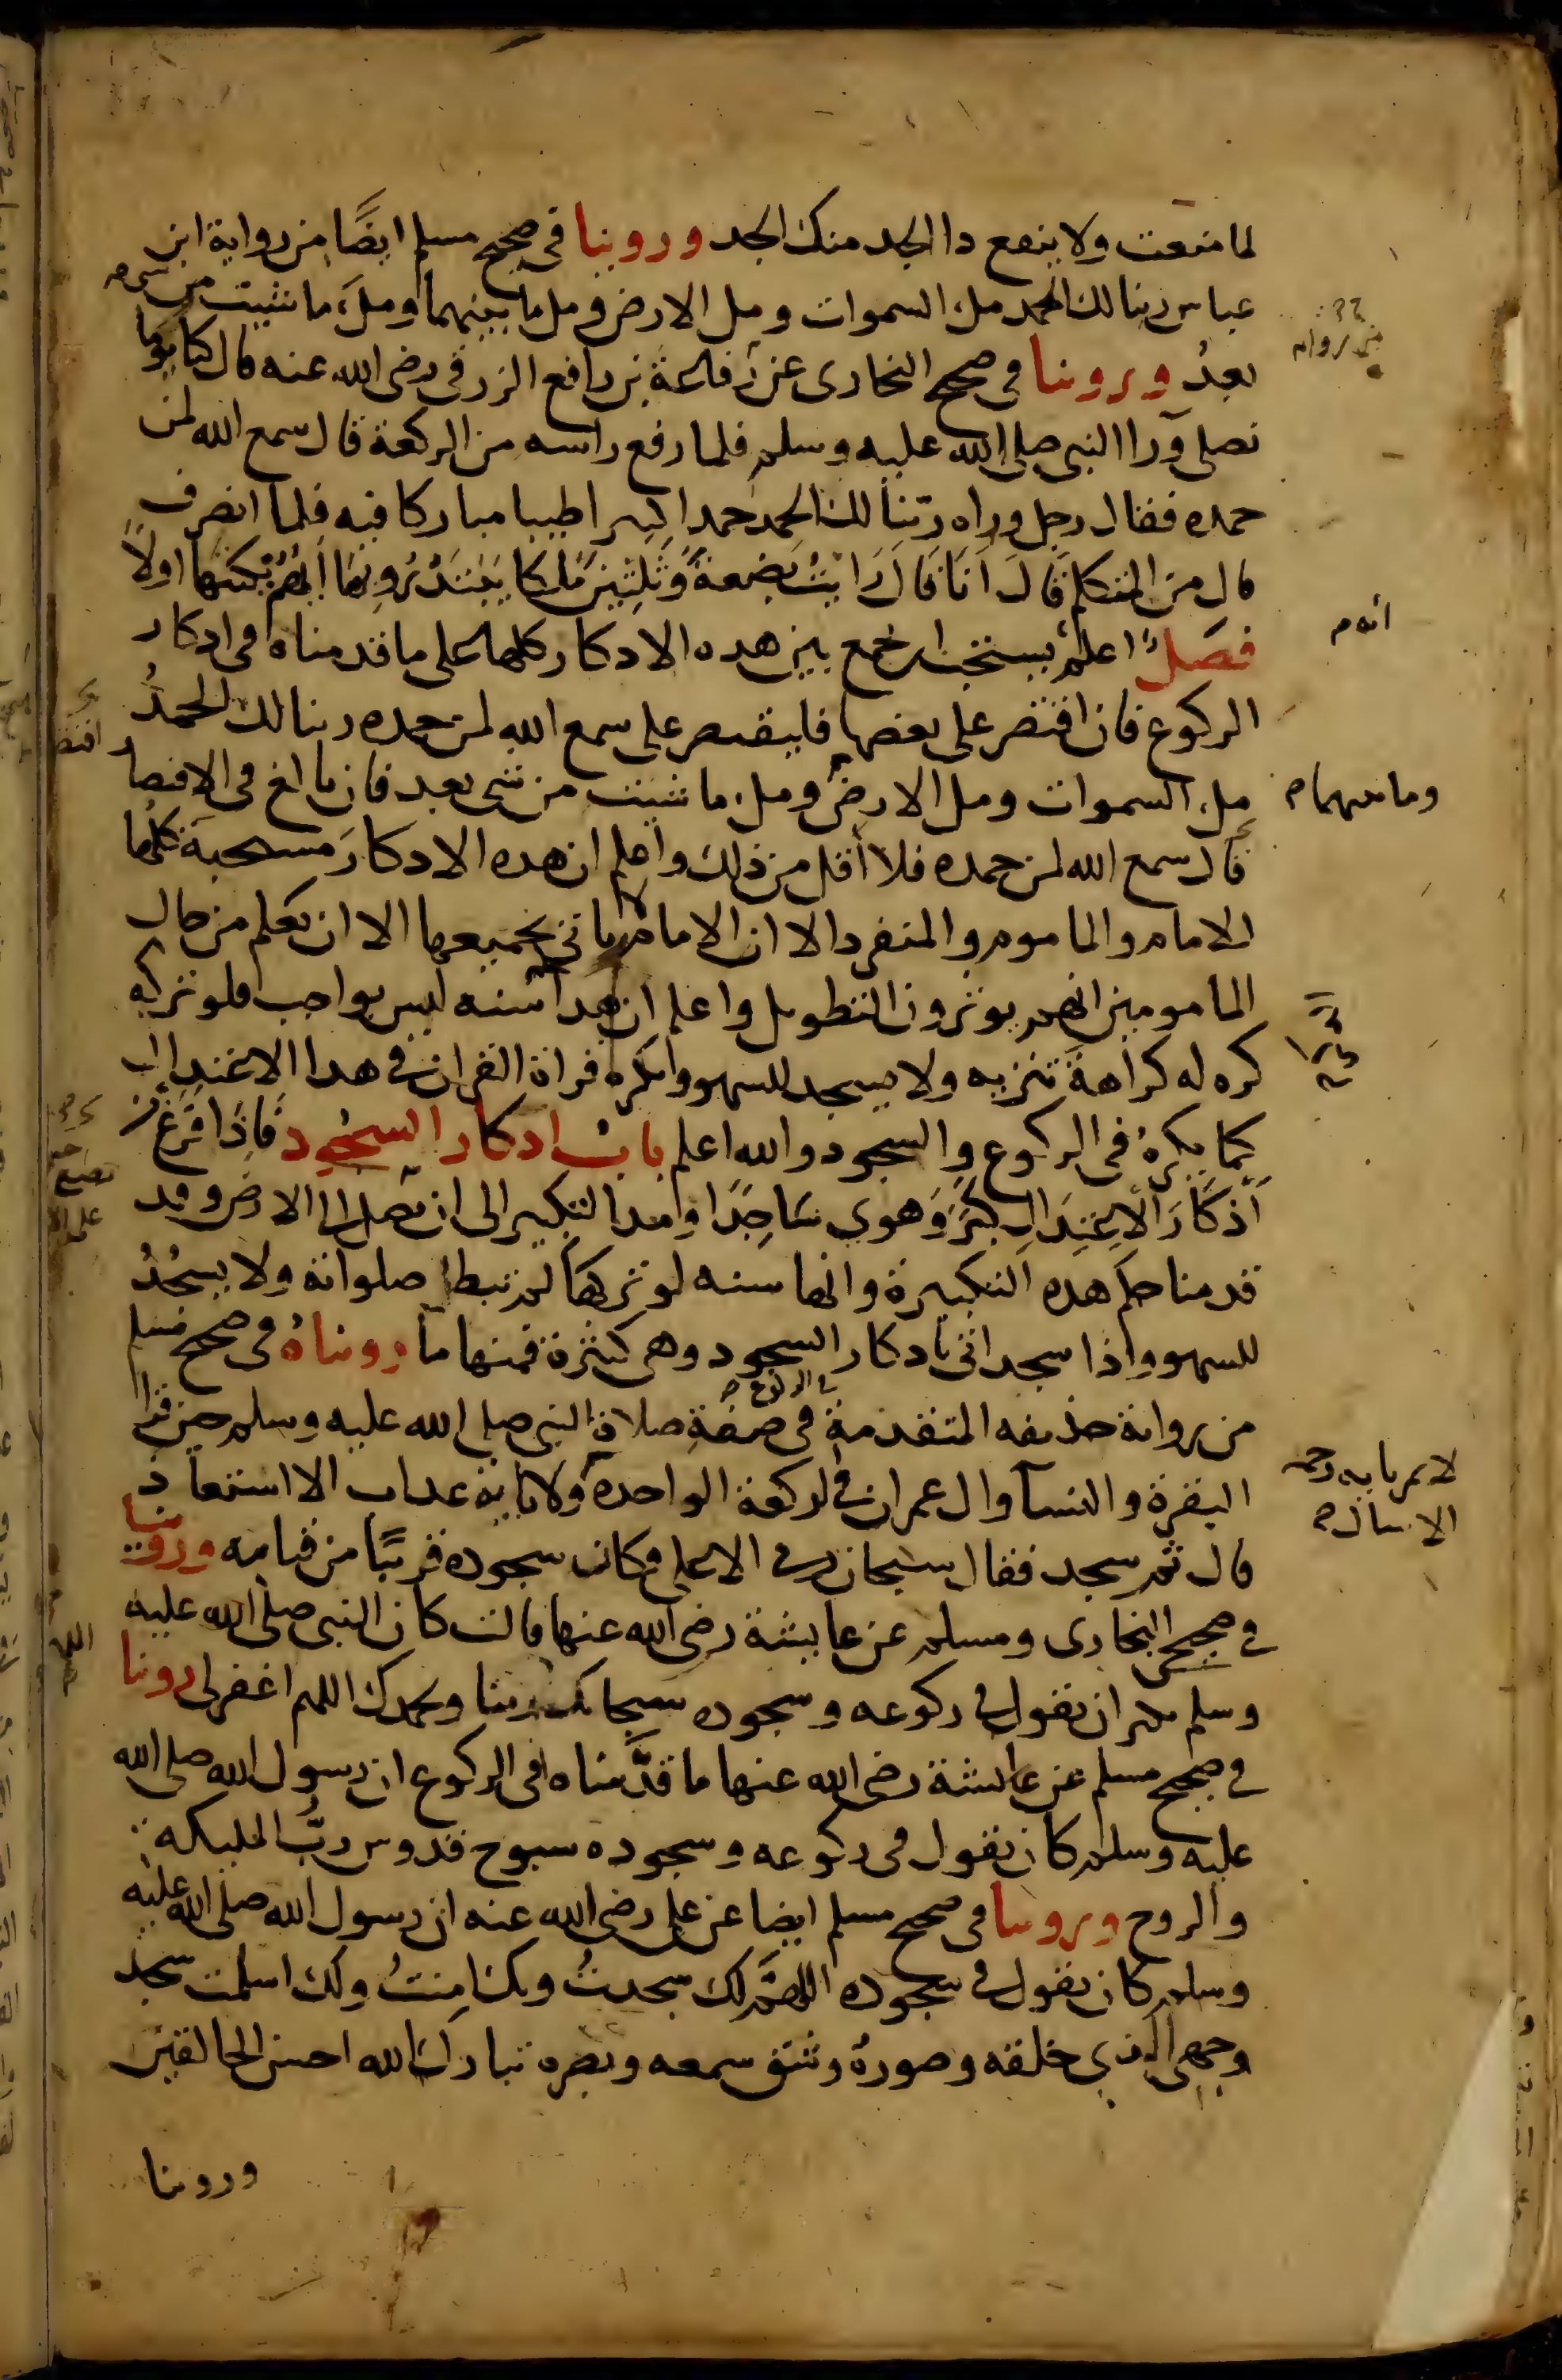 لما منعت ولا ينفع دا الجد منك الجد وروينا في صحيح مسلم ايضًا من رواية ابن
عباس ربنا لك الحمد ملء السموات ومل الارض ومل ما بينهما وملَٔ ما شيت من شي
بعدُ وروينا في صحيح البخاري عن رفاعة بن رافع الزرقي رضي الله عنه قال كنا يومًا
نصلي ورا النبي صلى الله عليه وسلم فلما رفع راسه من الركعة قال سمع الله لمن
حمده فقال رجل وراه ربّنا لك الحمد حمدا كثيرا طيبا مباركا فيه فلما انصرف
قال من المتكلم قَالَ اَنَا قَالَ رَايْتُ بضعةً وَثَلثِينَ مَلكا يَبْتَدرُونهَا اَيُّهُمْ يَكتبُها اولاً
فصَل اعلم يستحب ان يجمع بين هده الادكار كلها على ما قدمناه في ادكار
الركوع فان اقتصر على بعضها فليقتصر على سمع الله لمن حمده ربنا لك الحمدُ
مل السموات ومل الارض ومل ما شيت من شي بعد فان بالغ في الاقتصار
وما بينهما
قال سمع الله لمن حمده فلا أقل من ذلك واعلم ان هده الادكارَ مستحبة كلها
الامام والماموم والمنفرد الا ان الامام لا ياتي بجميعها الا ان يعلم من حال
المامومين انهم يوثرون التطويل واعلم ان هدا سنه ليس بواجب فلو تركه
كره له كراهةَ تنزيه ولا يسجد للسهو ويكره قراة القران في هدا الاعتدال
كما يكرهُ في الركوع والسجود والله اعلم باب ادكار السجود فَاذَا فَرَغَ من
أذكَارَ الاعتِدَالِ كبَّرَ وَهوي سَاجِدًا ومد التكبير الى ان يصل الى الارض وقد
قدمنا حكم هده التكبيرة وانها سنه لو تركها لم تبطل صلواته ولا يسجُدُ
للسهو واذا سجد اتى بادكار السجود وهي كثيرة فمنها ما رويناهُ في صحيح مسلم
من رواية حذيفه المتقدمة في صفة صلاة النبي صلى الله عليه وسلم حين قرا
البقرة والنسآ وال عمران في الركعة الواحدة ولا باية عداب الا استعاذ
لا يمر باية رحمه
الا سال
قال ثم سجد فقال سبحان ربي الاعلى وكان سجوده قريبًا من قيامه وروينا
في صحيحي البخاري ومسلم عن عايشة رضي الله عنها قالت كان النبي صلى الله عليه
وسلم يكثر ان يقول في ركوعه وسجوده سبحانك ربنا وبحمدك اللهم اغفر لي روينا
في صحيح مسلم عن عايشة رضي الله عنها ما قدَّمناه في الركوع ان رسول الله صلى الله
عليه وسلم كان يقول في ركوعه وسجوده سبوح قدوس ربُّ المليكه
والروح وروينا في صحيح مسلم ايضا عن علي رضي الله عنه ان رسول الله صلى الله عليه
وسلم كان يقول في سجوده اللهمَّ لك سجدتُ وبك امنتُ ولك اسلمت سجد
وجهي للذي خلقه وصورهُ وشق سمعه وبصره تبارك الله احسن الخالقين
وروينا